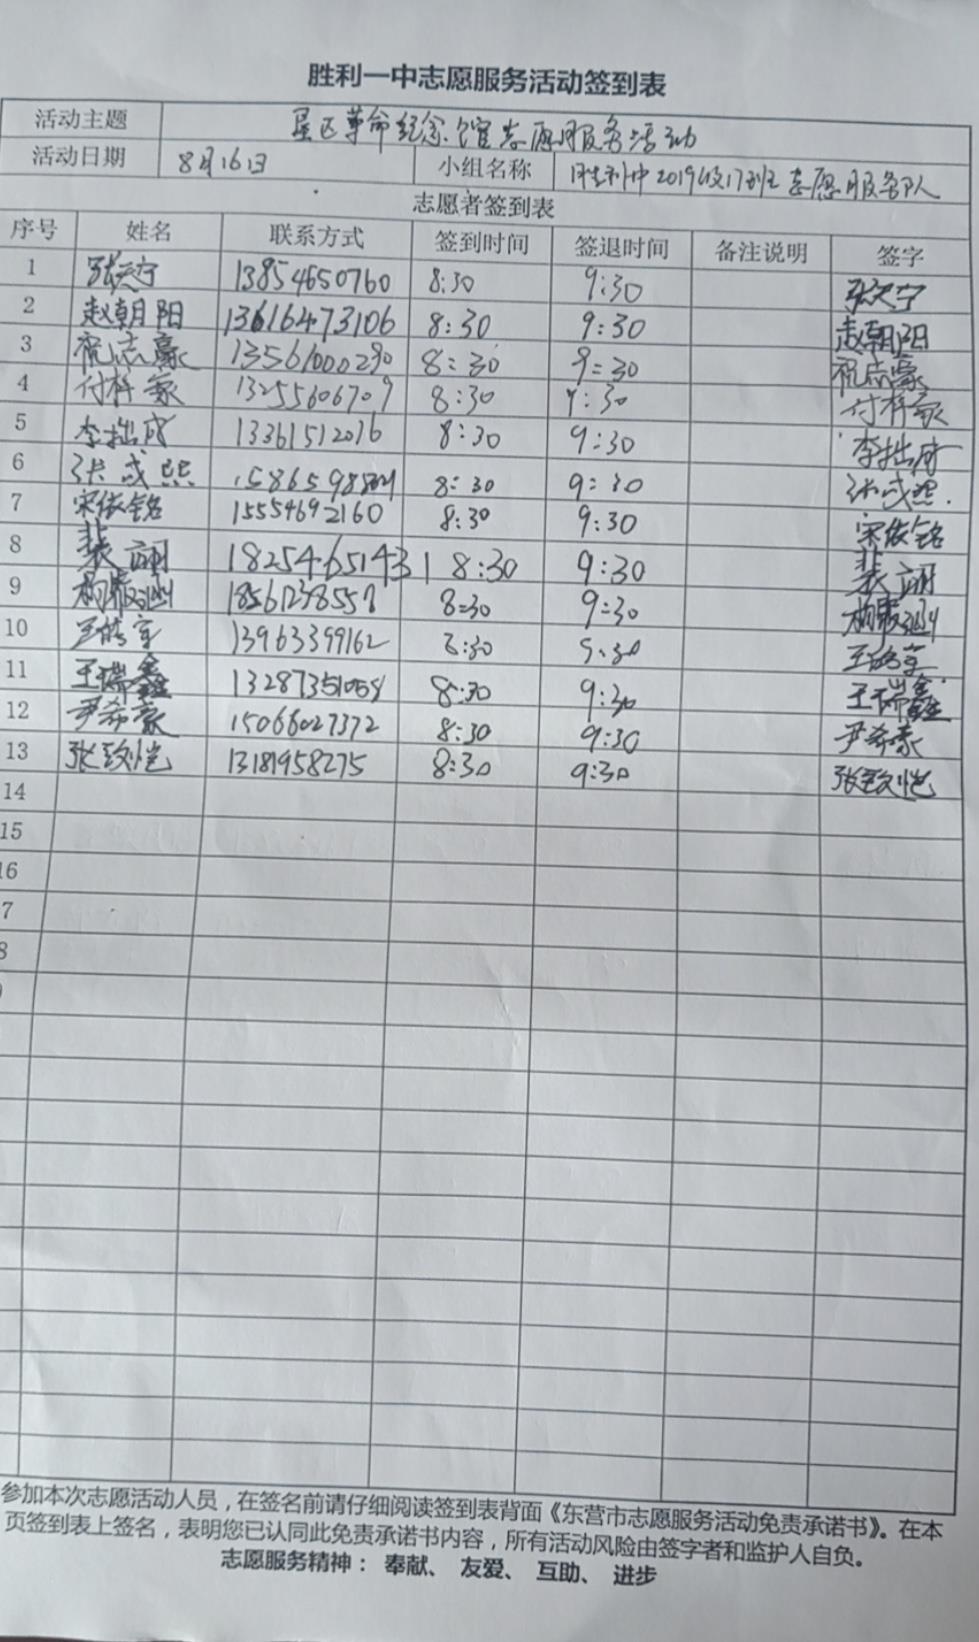 胜利一中志愿服务活动签到表
活动主题 垦区革命纪念馆志愿服务活动
活动日期 8月16日 小组名称 胜利一中2019级17班志愿服务队
志愿者签到表
序号 姓名 联系方式 签到时间 签退时间 备注说明 签字
1 张天宁 13854650760 8:30 9:30 张天宁
2 赵朝阳 13616473106 8:30 9:30 赵朝阳
3 祝志豪 13561000290 8:30 9:30 祝志豪
4 付梓豪 13255606709 8:30 9:30 付梓豪
5 李拙成 13361512016 8:30 9:30 李拙成
6 张成熙 8:30 9:30 张成熙
7 宋依铭 15554692160 8:30 9:30 宋依铭
8 裴翊 18254651431 8:30 9:30 裴翊
9 18561238557 8:30 9:30
10 13963399162 8:30 9:30
11 王瑞鑫 13287351058 8:30 9:30 王瑞鑫
12 尹希豪 15066027372 8:30 9:30 尹希豪
13 张致恺 13181958275 8:30 9:30 张致恺
14
15
16
7
8
参加本次志愿活动人员，在签名前请仔细阅读签到表背面《东营市志愿服务活动免责承诺书》。在本
页签到表上签名，表明您已认同此免责承诺书内容，所有活动风险由签字者和监护人自负。
志愿服务精神： 奉献、 友爱、 互助、 进步